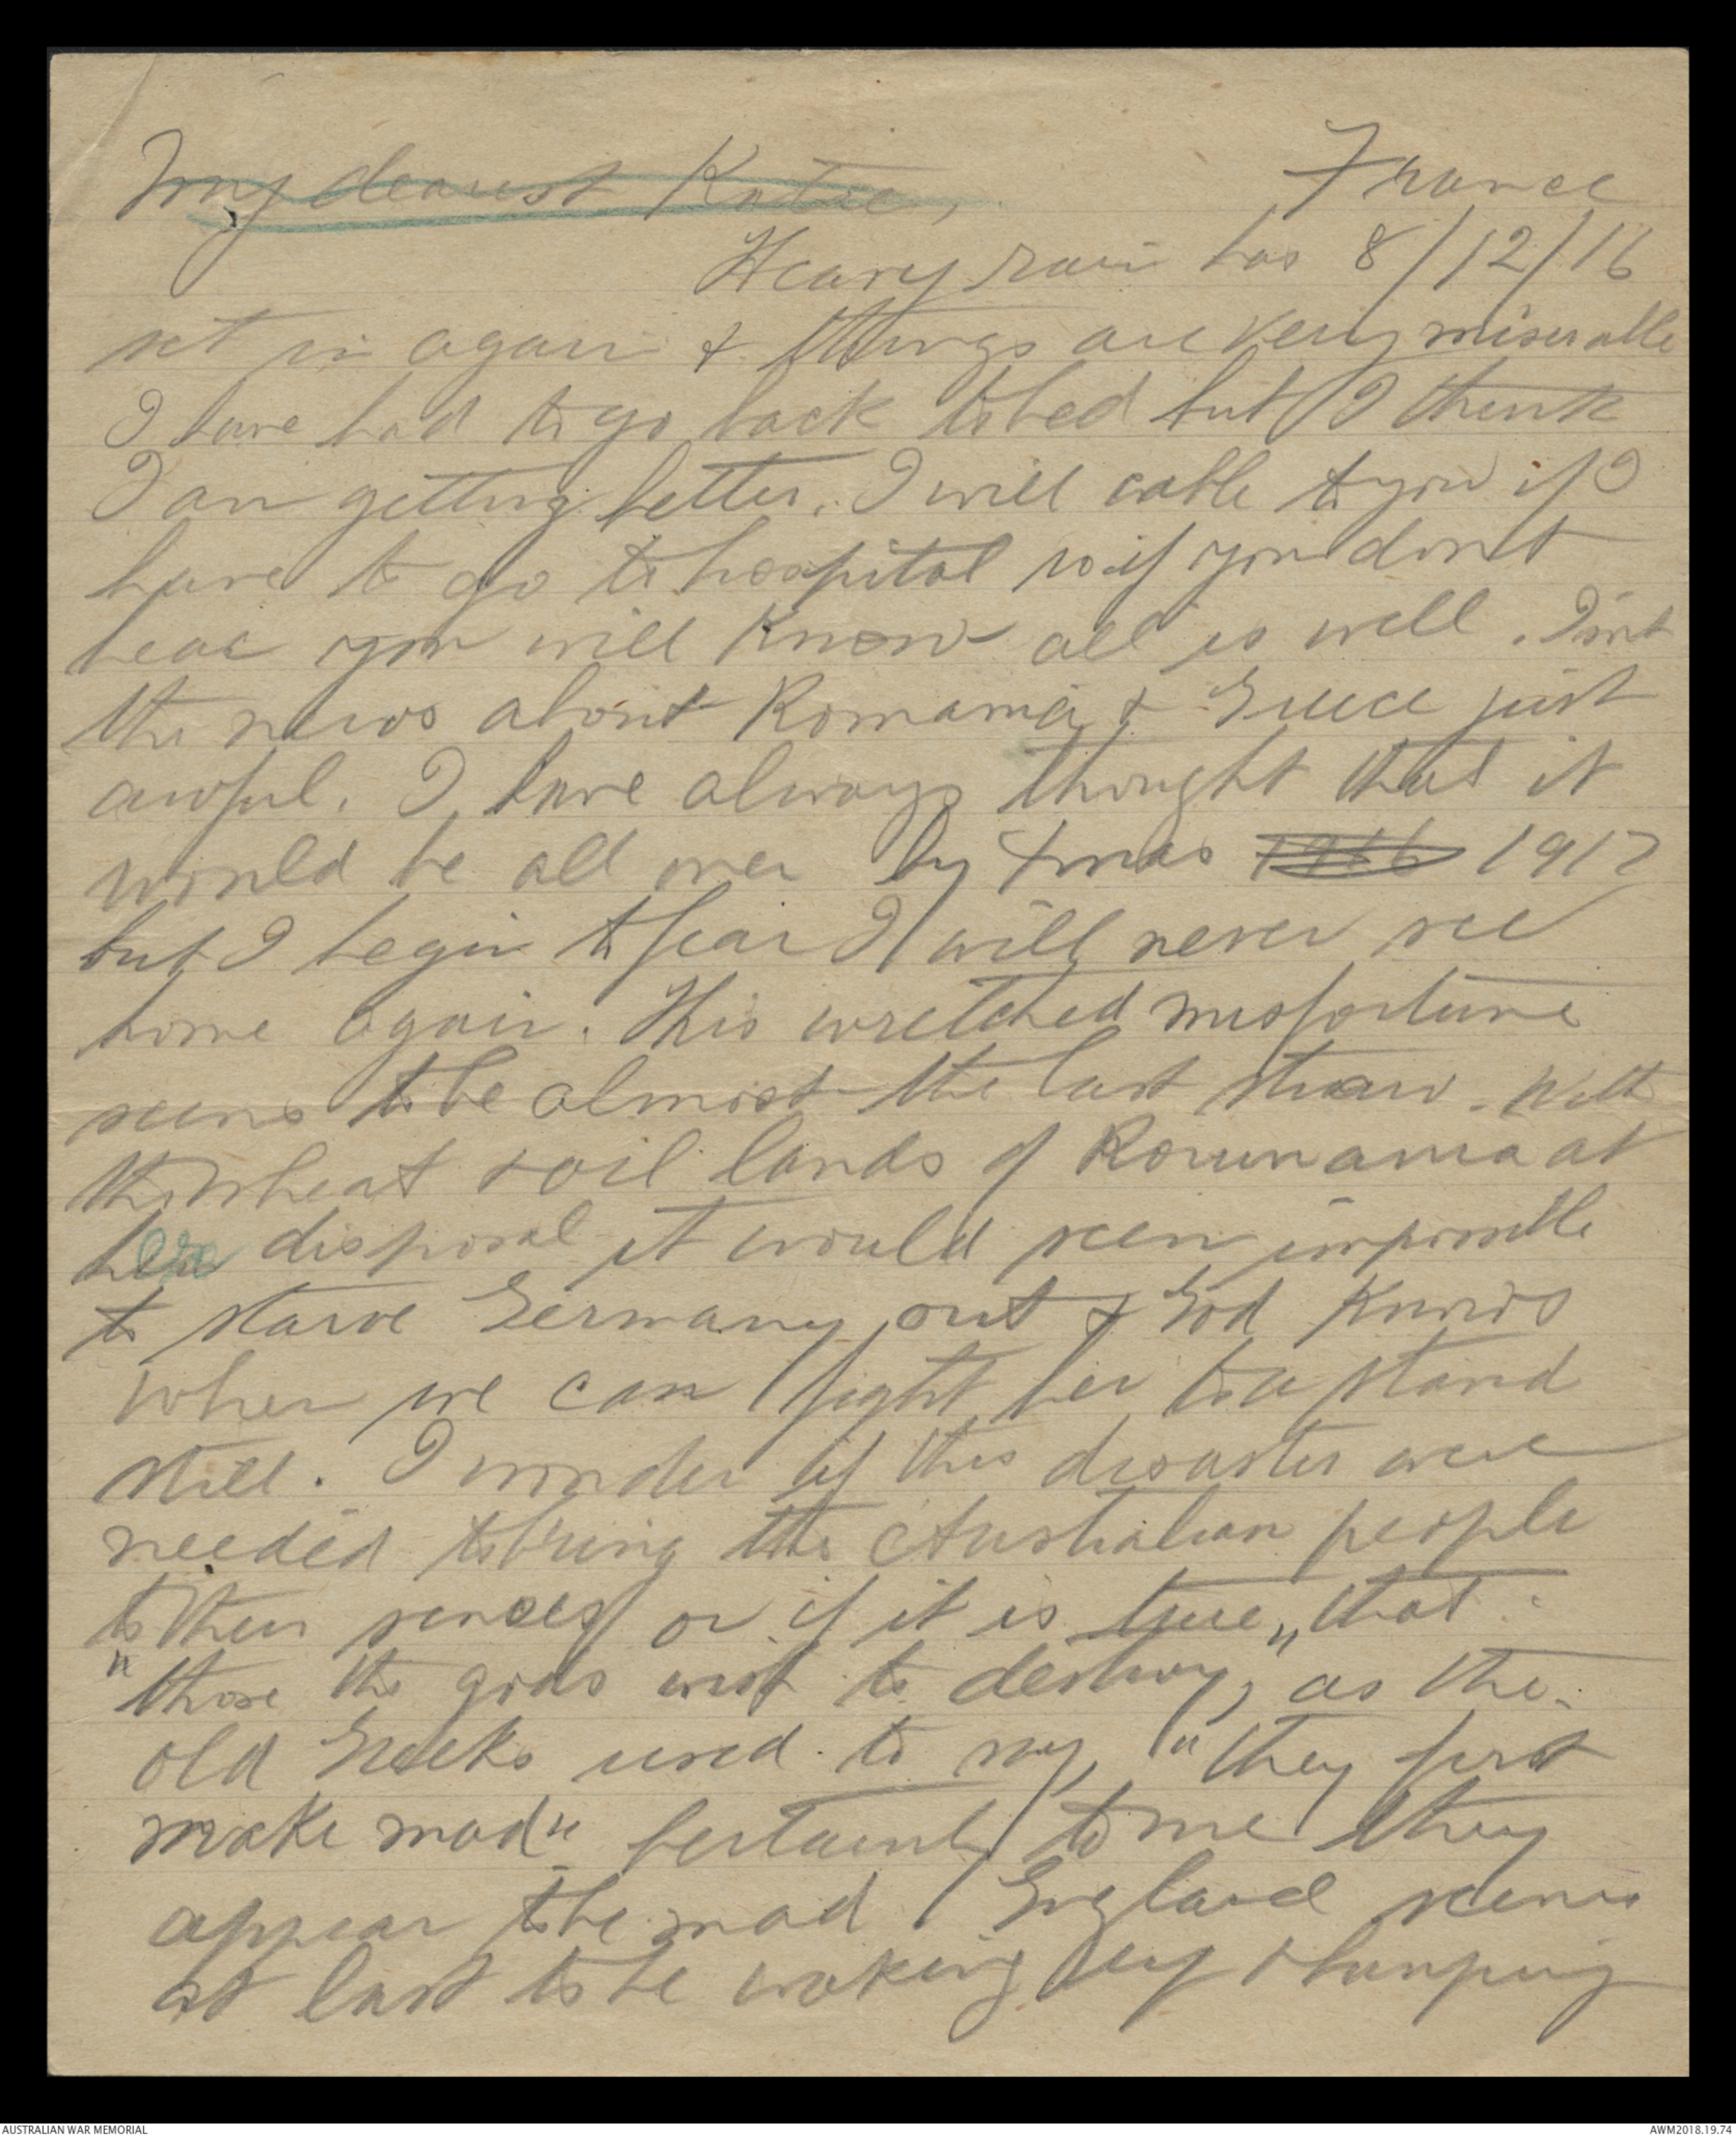 My dearest Katie,
France
Heavy rain has 8/12/16
set in again & things are very miserable
I have had to go back to bed but I think
I am getting better. I will cable to you if I
have to go to hospital so if you dont
hear you will know all is well. Isnt
the news about Romania & Greece just
awful. I have always thought that it
would be all over by Xmas 1916 1917
but I begin to fear I will never see
home again. This wretched misfortune
seems to be almost the last straw. With
the wheat & oil lands of Roumania at
her disposal it would seem impossible
to starve Germany out & God knows
when we can fight her to a stand
still. I wonder if this disaster were
needed to bring the Australian people
to their senses or if it is true, that
"those the gods wish to destroy", as the
old Greeks used to say, "they first
make mad" Certainly to me they
appear to be mad England seems
at last to be waking up & dumping
AUSTRALIAN WAR MEMORIAL
AWM2018.19.74